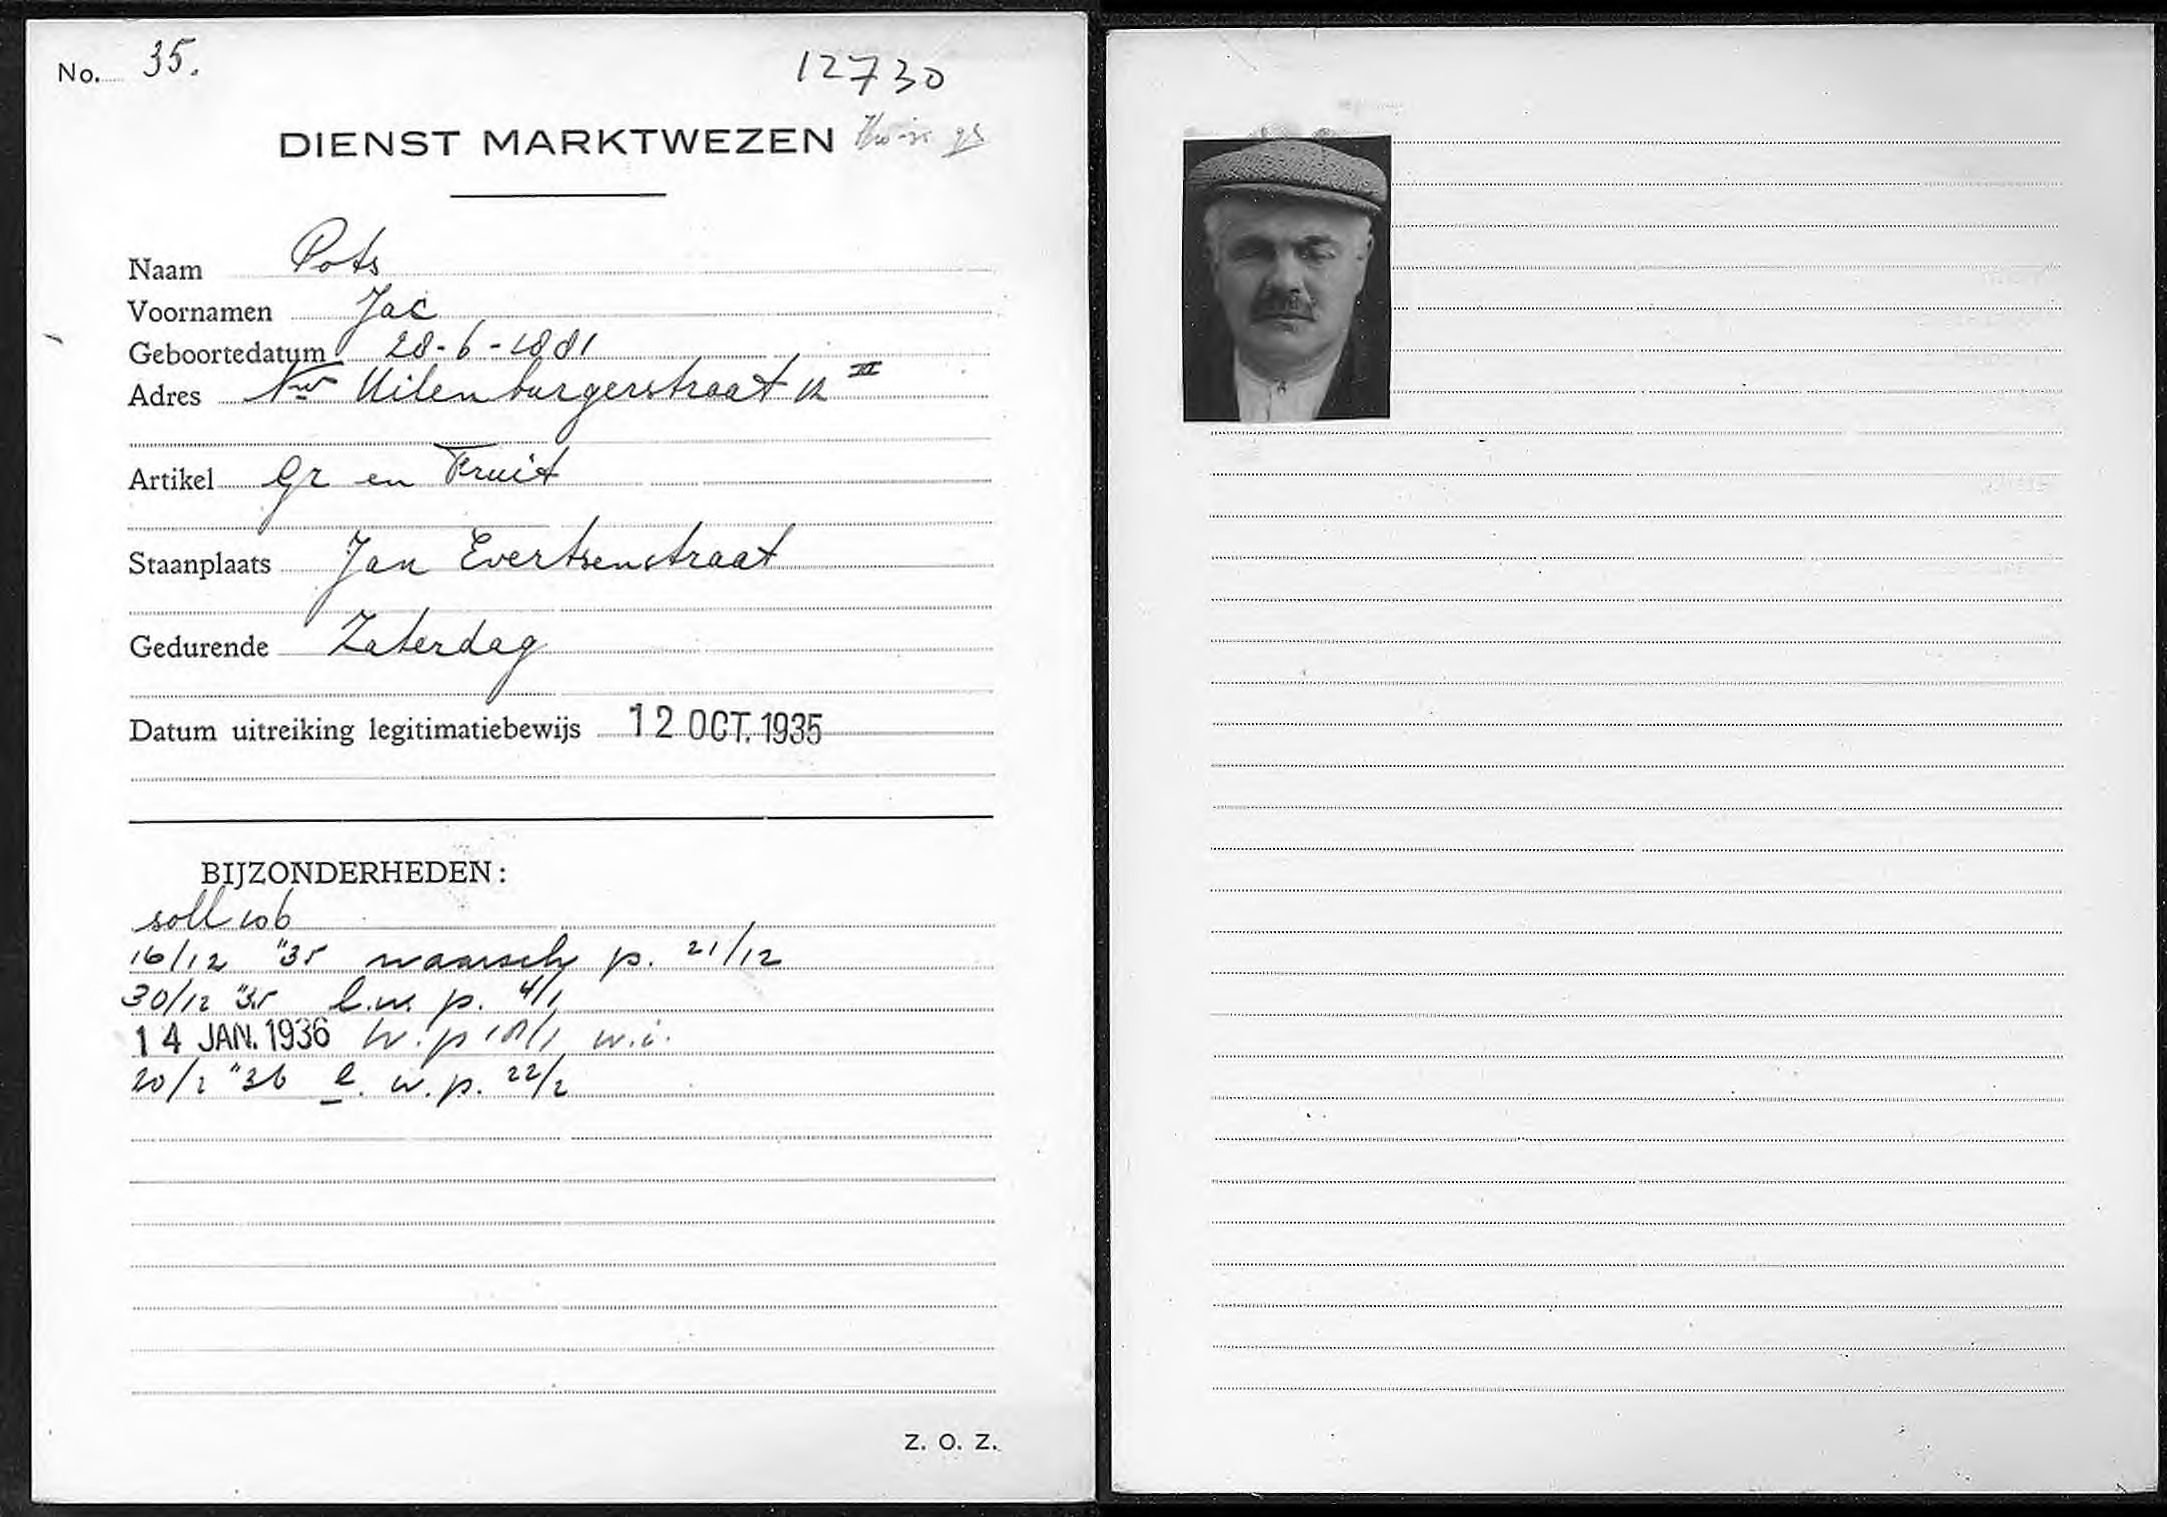 No. 35.
12730
DIENST MARKTWEZEN
Naam Pots
Voornamen Jac
Geboortedatum 28-6-1881
Adres Nw Uilenburgerstraat 12 III
Artikel Gr en Fruit
Staanplaats Jan Evertsenstraat
Gedurende Zaterdag
Datum uitreiking legitimatiebewijs 12 OCT. 1935
BIJZONDERHEDEN:
soll 106
16/12 "35 waarsch p. 21/12
30/12 "35 l.w. p. 4/1
14 JAN. 1936 w.p 18/1 w.i.
20/2 "36 l. w.p. 22/2
Z. O. Z.